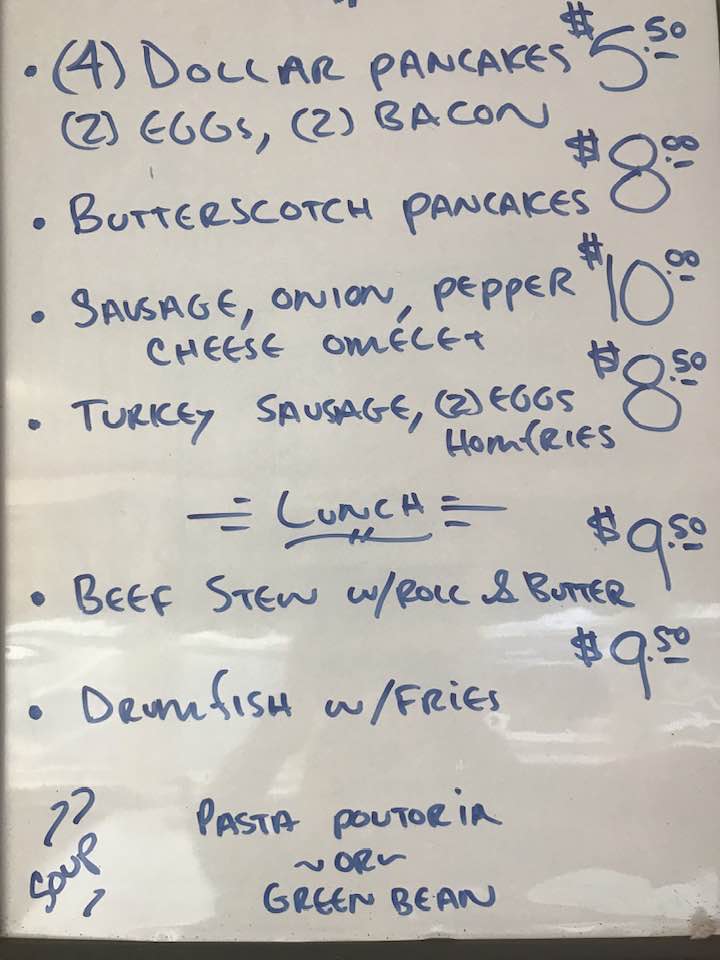 • (4) DOLLAR PANCAKES $5.50
(2) EGGS, (2) BACON
• BUTTERSCOTCH PANCAKES $8.00
• SAUSAGE, ONION, PEPPER $10.00
CHEESE OMELET
• TURKEY SAUSAGE, (2) EGGS $8.50
HOMFRIES
LUNCH
• BEEF STEW W/ROLL & BUTTER $9.50
• DRUMFISH W/FRIES $9.50
SOUP
PASTA POUTORIA
~OR~
GREEN BEAN